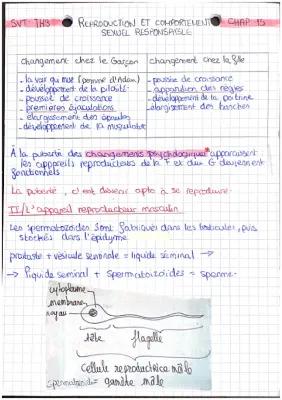 SVT: TH3
REPRODUCTION ET COMPORTEMENT
SEXUEL RESPONSABLE
CHAP 15
Changement chez le Garçon
- la voix qui mue (pomme d'Adam)
- développement de la pilosité
- poussée de croissance
- premières éjaculations
- élargissement des épaules
- développement de la musculature
changement chez la fille
- poussée de croissance
- apparition des règles
- développement de la poitrine
- élargissement des hanches
À la puberté des changements psychologiques* apparaissent
les appareils reproducteurs de la F et du G deviennent
fonctionnels
La puberté, c'est devenir apte à se reproduire.
II/L'appareil reproducteur masculin
Les spermatozoïdes sont fabriqués dans les testicules, puis
stockés dans l'épidyme
prostate + vésicule séminale = liquide séminal →
→ liquide séminal + spermatozoïdes = sperme.
cytoplasme
membrane
noyau
tête
flagelle
Cellule reproductrice mâle
spermatozoïde = gamète mâle